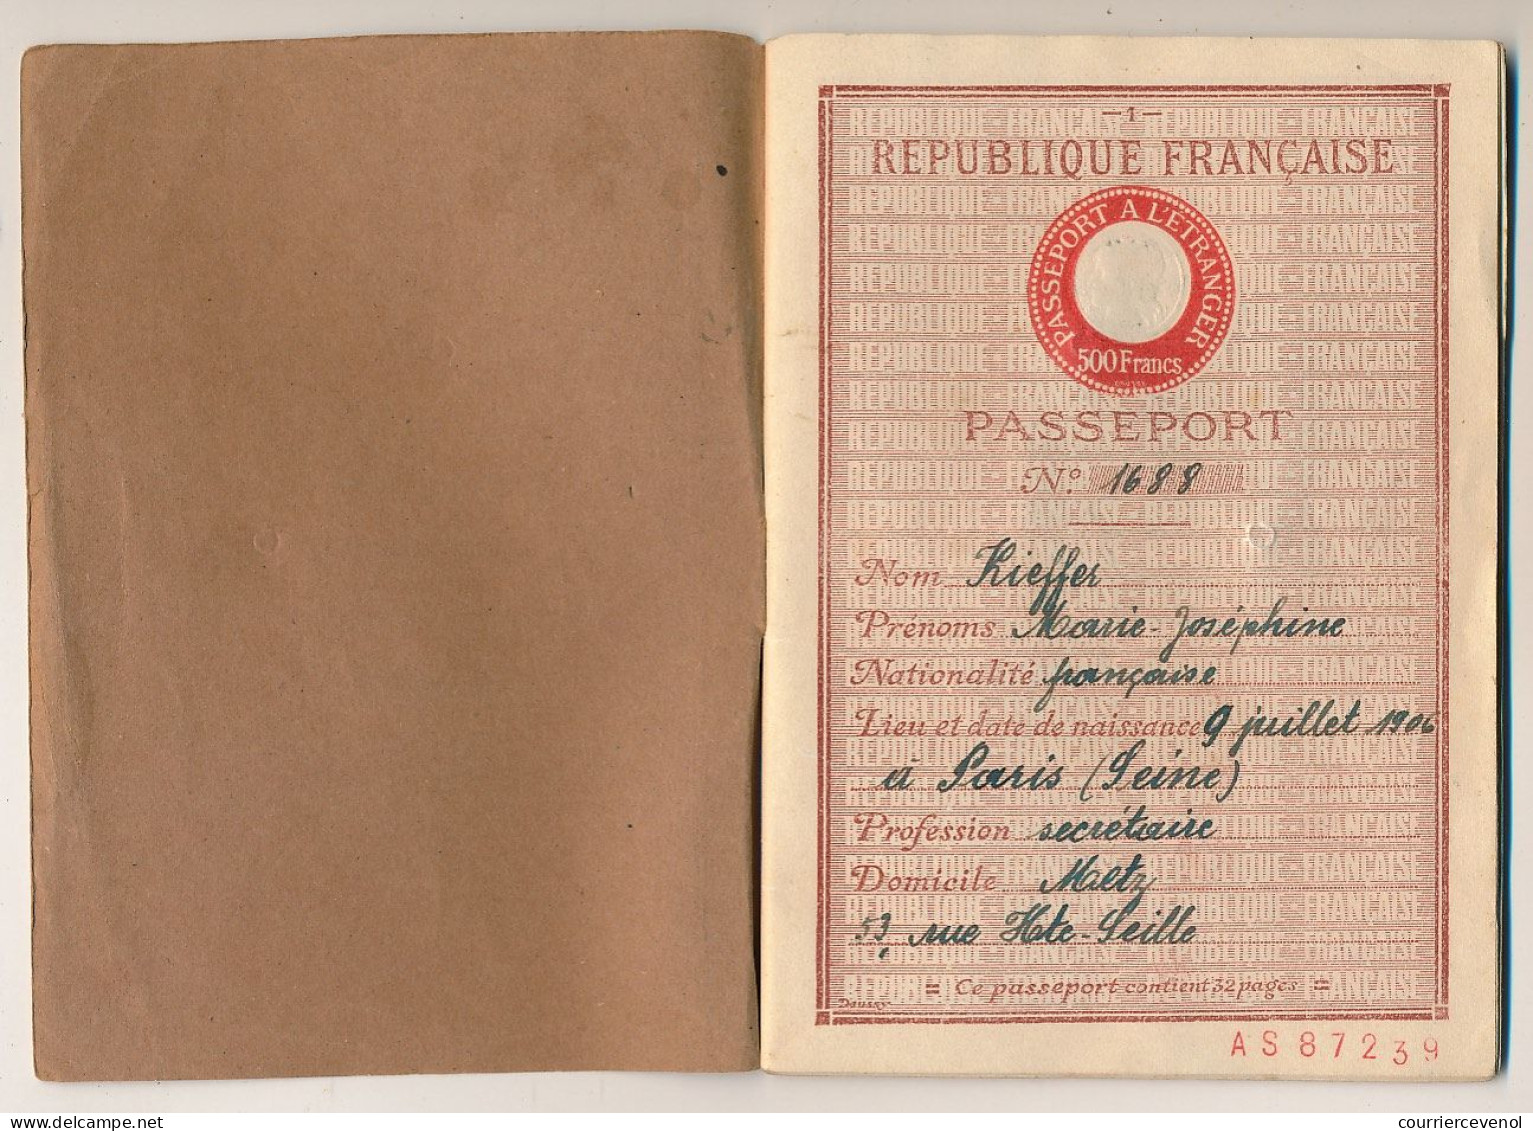 — 1 —
REPUBLIQUE FRANÇAISE
PASSEPORT A L'ÉTRANGER
500 Francs
PASSEPORT
N° 1688
Nom Kieffer
Prénoms Marie-Joséphine
Nationalité française
Lieu et date de naissance 9 juillet 1906
à Paris (Seine)
Profession secrétaire
Domicile Metz
53, rue Hte-Seille
= Ce passeport contient 32 pages =
Daussy
AS87239
courriercevenol